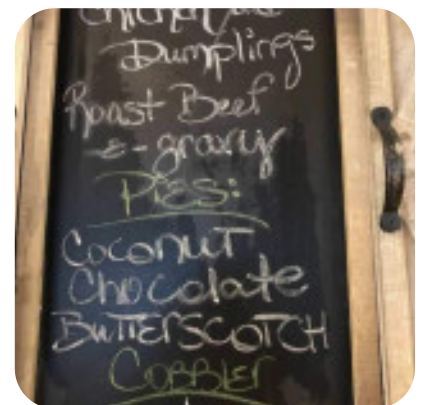 Chicken and
Dumplings
Roast Beef
-&- gravy
PIES:
Coconut
Chocolate
BUTTERSCOTCH
COBBLER